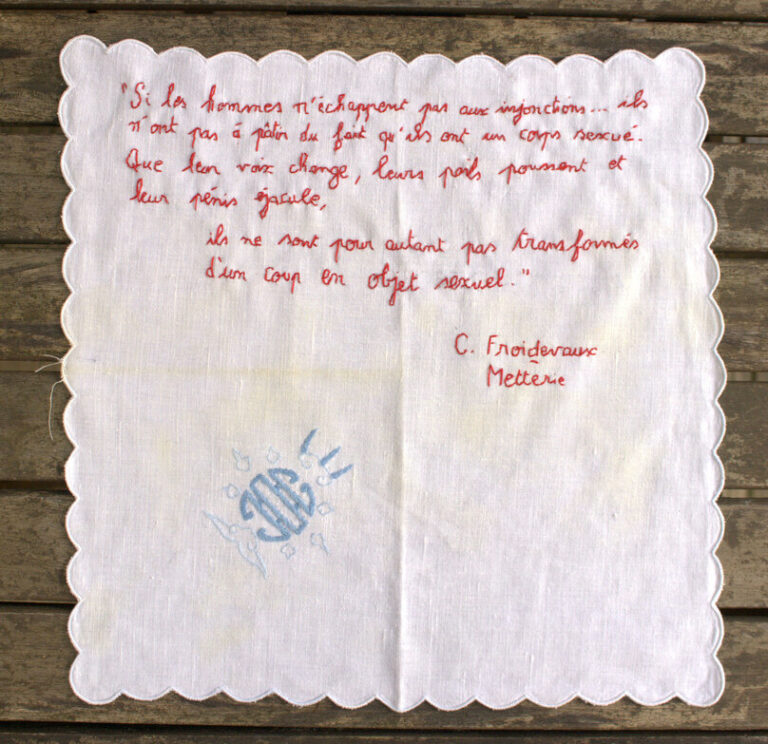 "Si les hommes n'échappent pas aux injonctions... ils
n'ont pas à pâtir du fait qu'ils ont un corps sexué.
Que leur voix change, leurs poils poussent et
leur pénis éjacule,
ils ne sont pour autant pas transformés
d'un coup en objet sexuel."
C. Froidevaux
Metterie